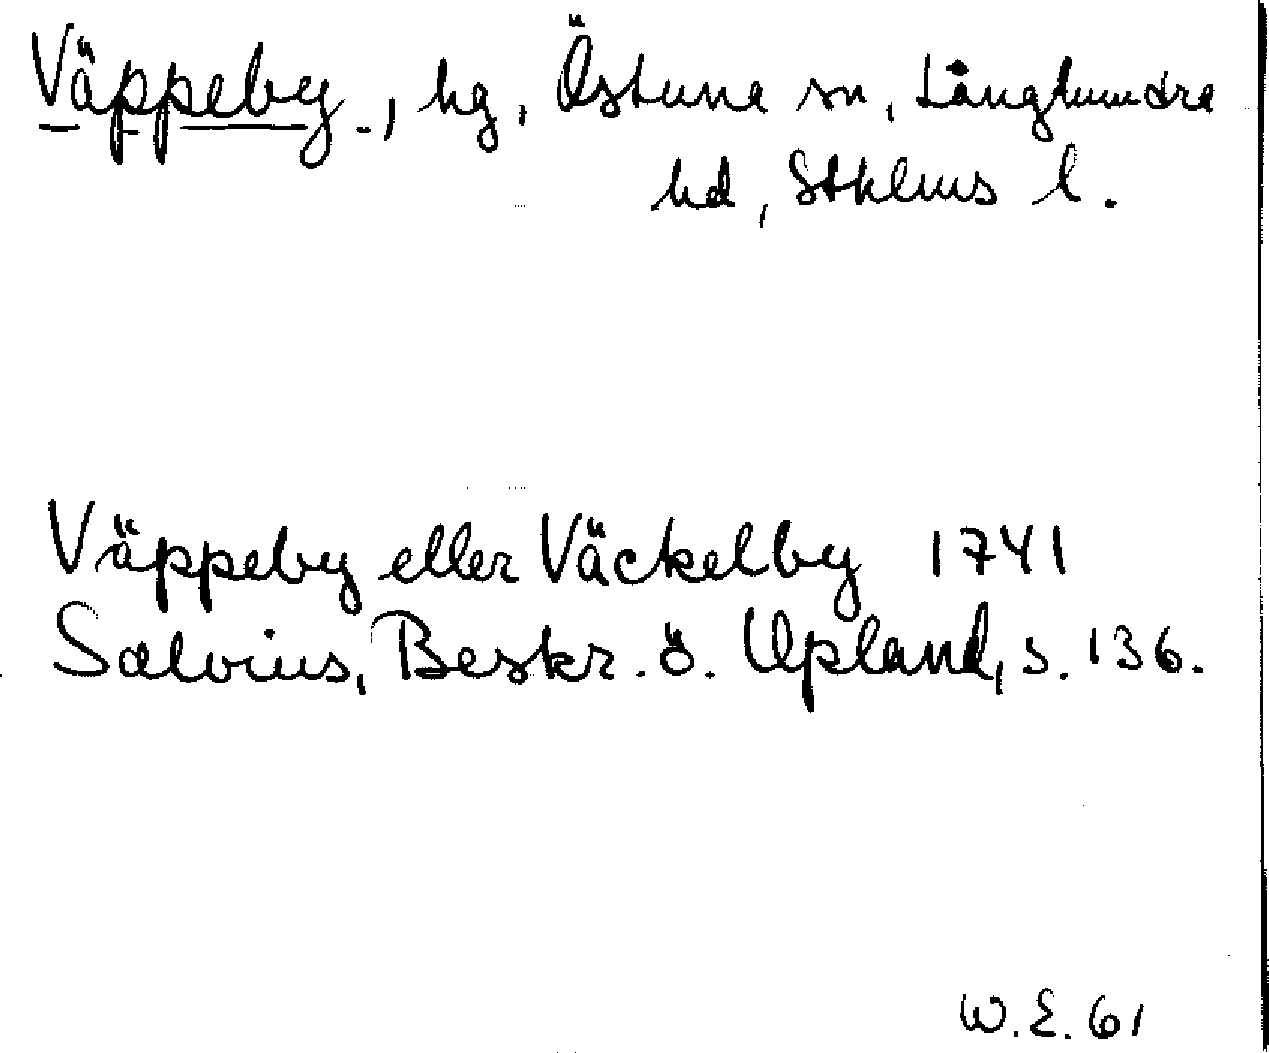 Väppeby, hg, Östuna sn, Långhundra
hd, Sthlms l.
Väppeby eller Väckelby 1741
Salvius, Beskr. ö. Upland, s. 136.
W.E. 61